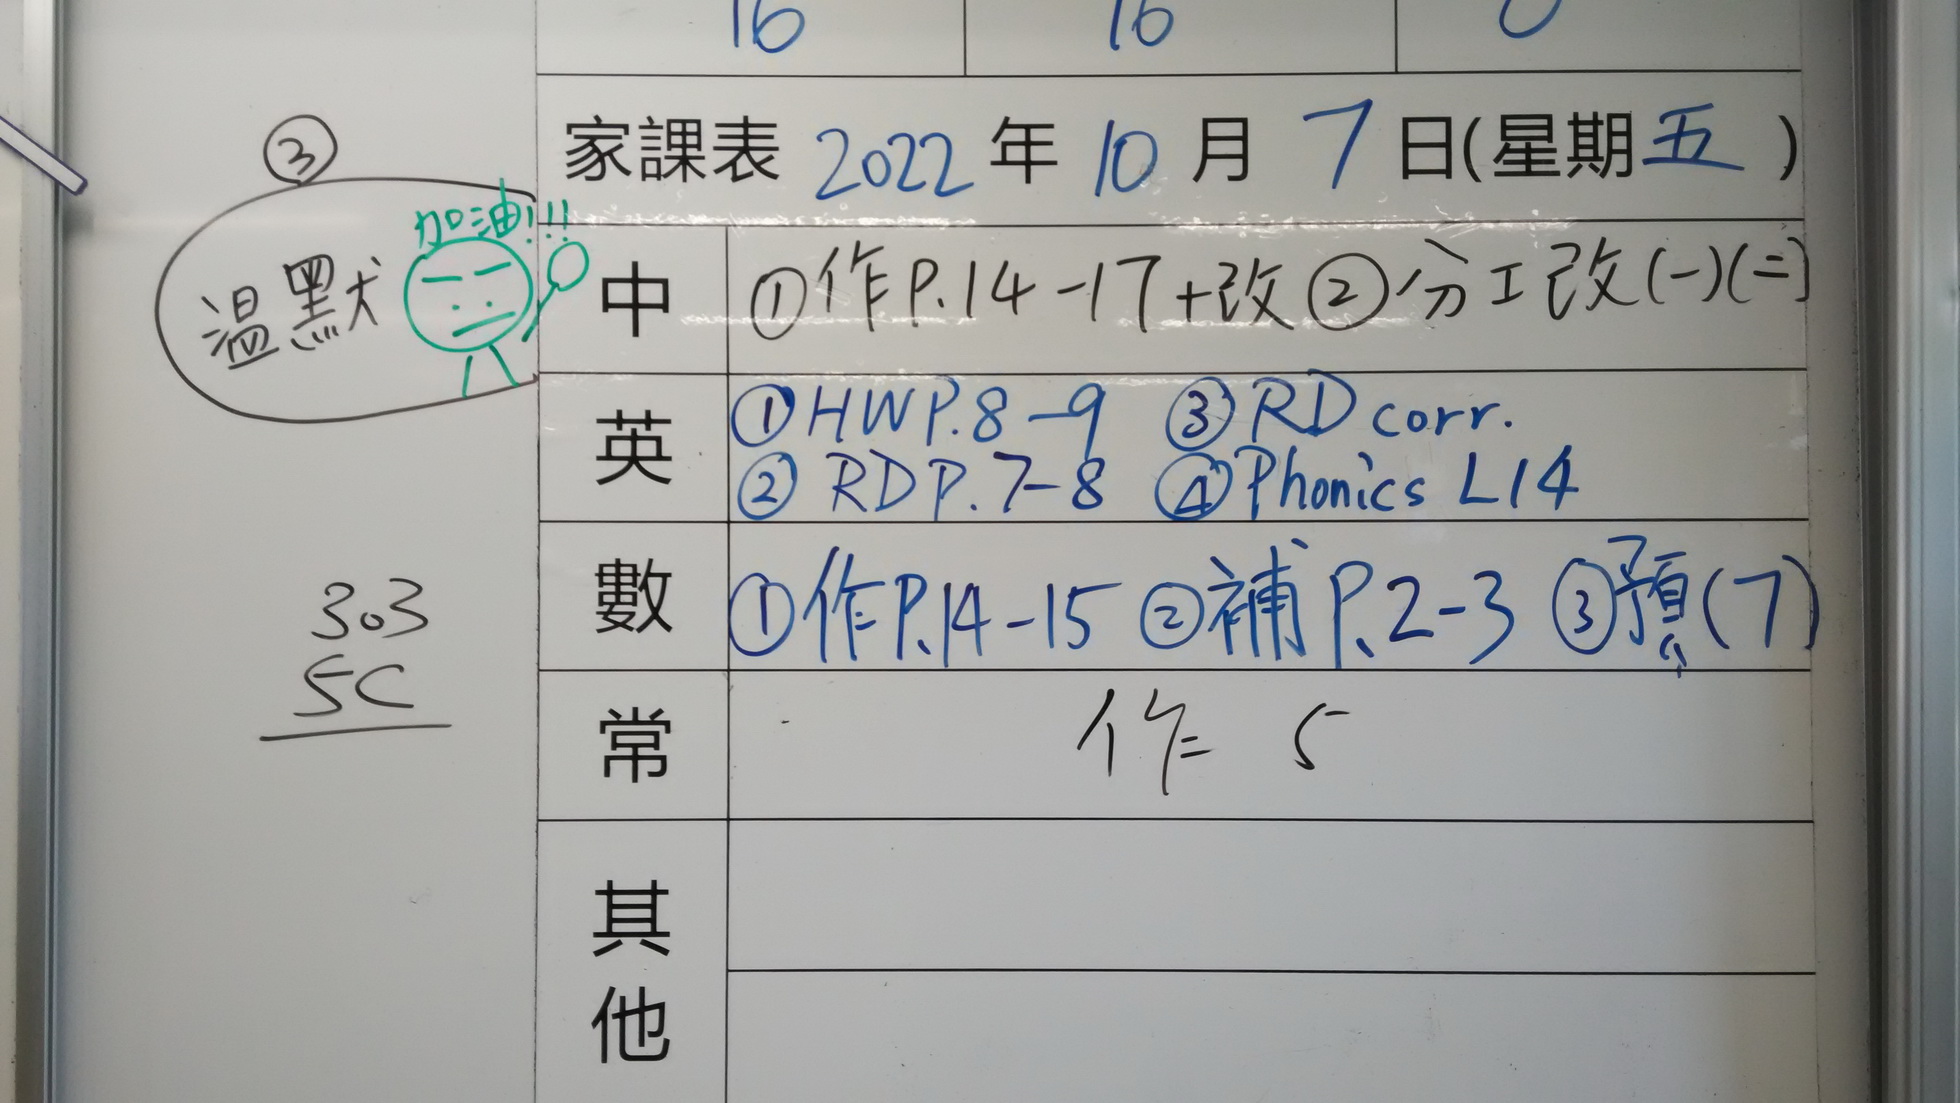 16 16
家課表 2022 年 10 月 7 日(星期五)
③
溫默
加油!!!
中 ①作P.14-17+改 ②分工改(一)(二)
英 ①HWP.8-9 ③RD corr.
②RDP.7-8 ④Phonics L14
數 ①作P.14-15 ②補P.2-3 ③預(7)
303
5C
常 作 5
其他